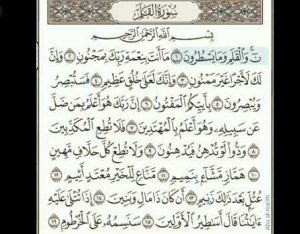 سُورَةُ القَلَمِ
بِسْمِ اللَّهِ الرَّحْمَٰنِ الرَّحِيمِ
نٓ وَالْقَلَمِ وَمَا يَسْطُرُونَ ١ مَا أَنتَ بِنِعْمَةِ رَبِّكَ بِمَجْنُونٍ ٢ وَإِنَّ
لَكَ لَأَجْرًا غَيْرَ مَمْنُونٍ ٣ وَإِنَّكَ لَعَلَىٰ خُلُقٍ عَظِيمٍ ٤ فَسَتُبْصِرُ
وَيُبْصِرُونَ ٥ بِأَييِّكُمُ الْمَفْتُونُ ٦ إِنَّ رَبَّكَ هُوَ أَعْلَمُ بِمَن ضَلَّ
عَن سَبِيلِهِ وَهُوَ أَعْلَمُ بِالْمُهْتَدِينَ ٧ فَلَا تُطِعِ الْمُكَذِّبِينَ
٨ وَدُّوا لَوْ تُدْهِنُ فَيُدْهِنُونَ ٩ وَلَا تُطِعْ كُلَّ حَلَّافٍ مَّهِينٍ
١٠ هَمَّازٍ مَّشَّاءٍ بِنَمِيمٍ ١١ مَّنَّاعٍ لِّلْخَيْرِ مُعْتَدٍ أَثِيمٍ ١٢
عُتُلٍّ بَعْدَ ذَٰلِكَ زَنِيمٍ ١٣ أَن كَانَ ذَا مَالٍ وَبَنِينَ ١٤ إِذَا تُتْلَىٰ عَلَيْهِ
ءَايَٰتُنَا قَالَ أَسَٰطِيرُ الْأَوَّلِينَ ١٥ سَنَسِمُهُ عَلَى الْخُرْطُومِ ١٦